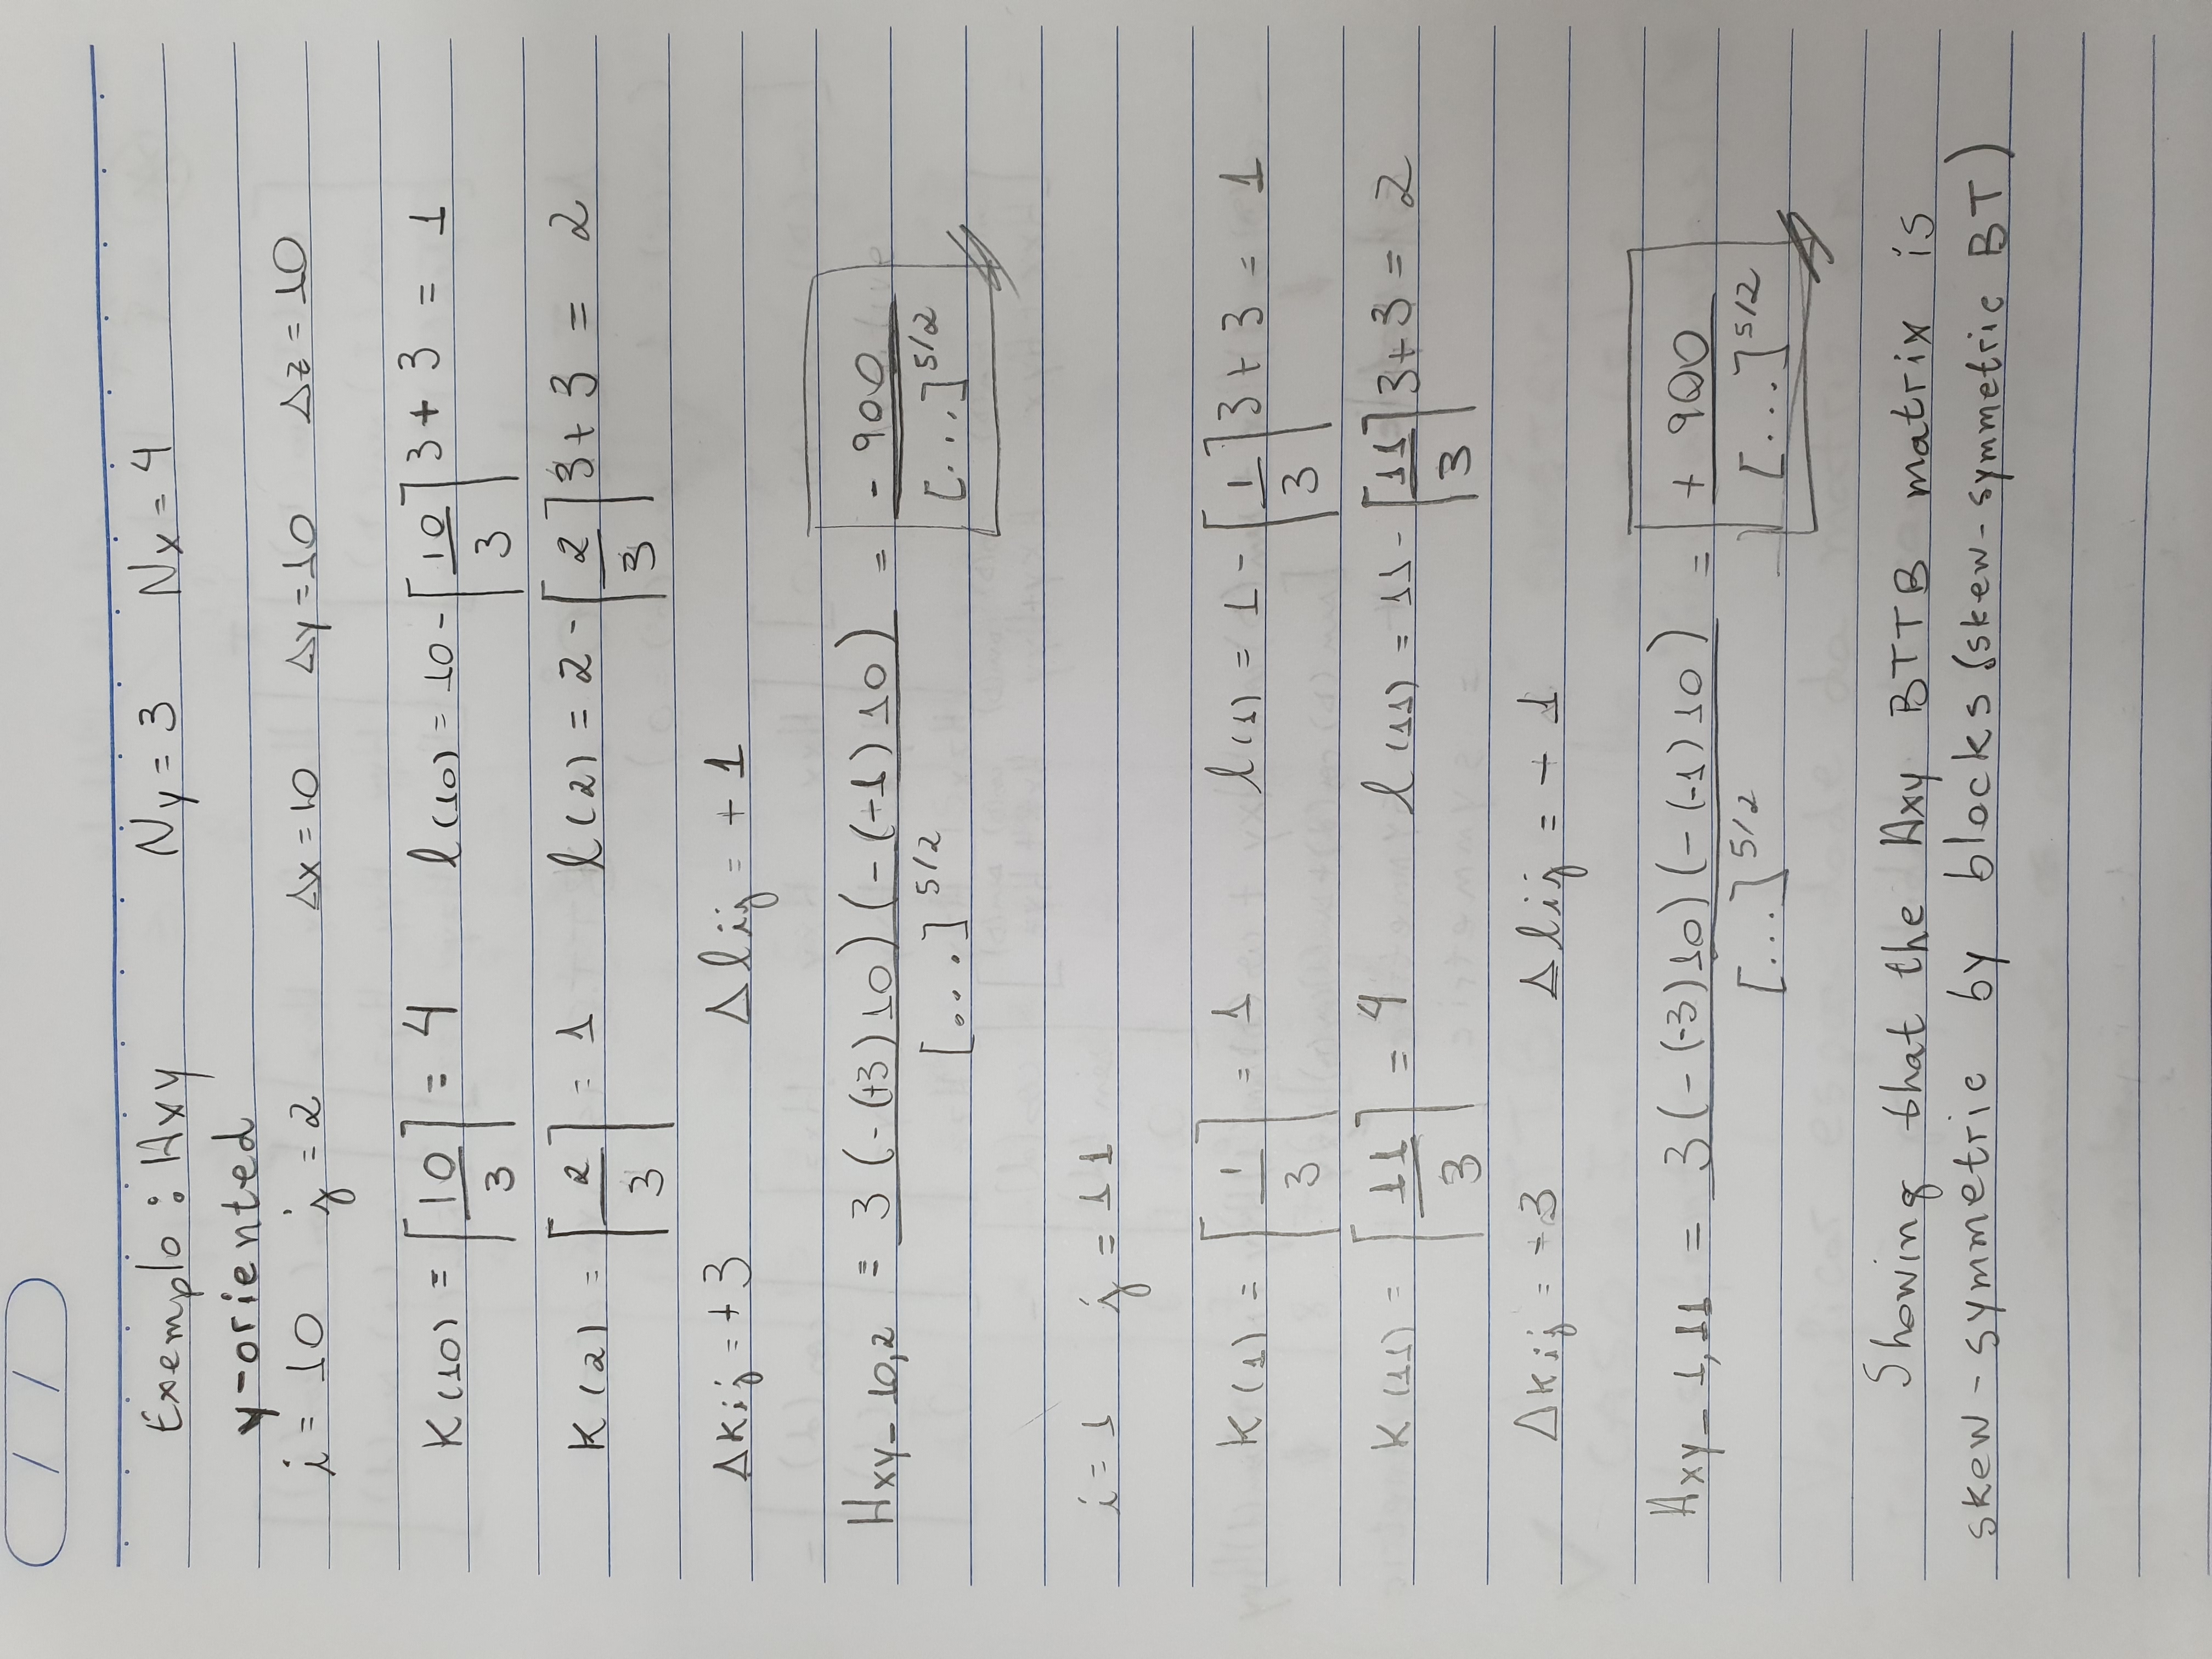 / /
Exemplo: Hxy Ny = 3 Nx = 4
y-oriented
i = 10 j = 2 Δx = 10 Δy = 10 Δz = 10
K(10) = ⌈10/3⌉ = 4 l(10) = 10 - ⌈10/3⌉ 3 + 3 = 1
K(2) = ⌈2/3⌉ = 1 l(2) = 2 - ⌈2/3⌉ 3 + 3 = 2
Δkij = +3 Δlij = +1
Hxy_10,2 = 3(-(+3)10)(-(+1)10) / [...]^5/2 = -900 / [...]^5/2
i = 1 j = 11
K(1) = ⌈1/3⌉ = 1 l(1) = 1 - ⌈1/3⌉ 3 + 3 = 1
K(11) = ⌈11/3⌉ = 4 l(11) = 11 - ⌈11/3⌉ 3 + 3 = 2
Δkij = -3 Δlij = - 1
Hxy_1,11 = 3(-(-3)10)(-(-1)10) / [...]^5/2 = + 900 / [...]^5/2
Showing that the Hxy BTTB matrix is
skew-symmetric by blocks (skew-symmetric BT)